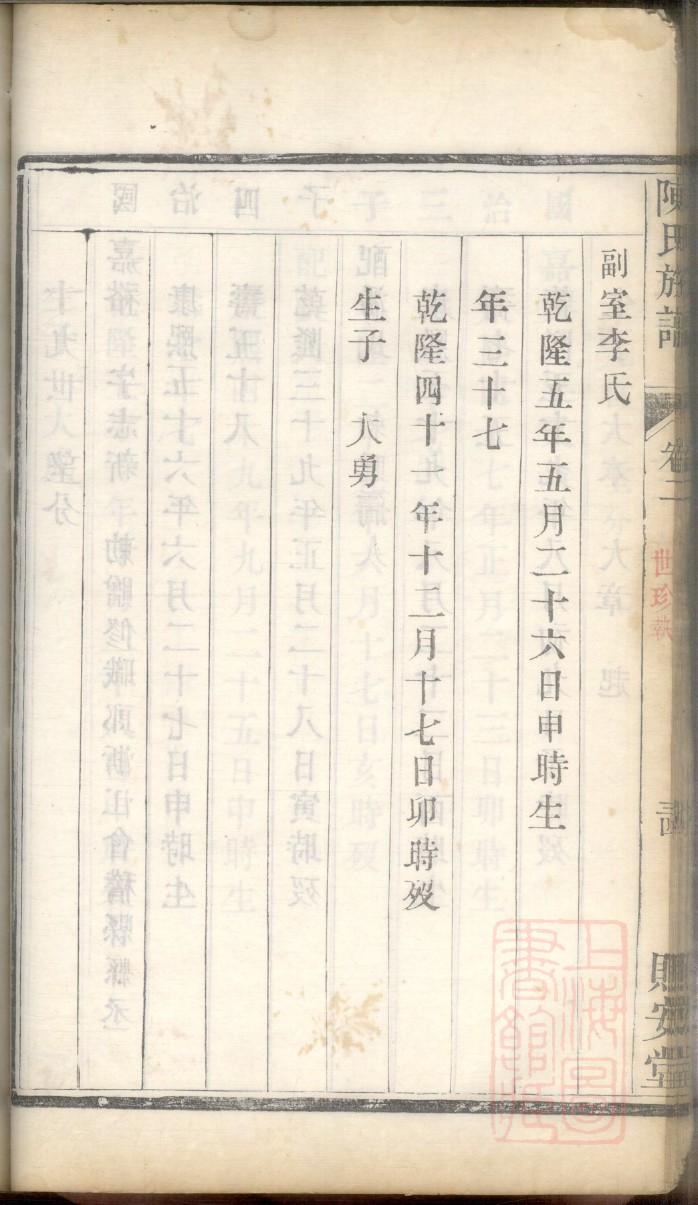 副室李氏
乾隆五年五月二十六日申時生
年三十七
乾隆四十一年十二月十七日卯時歿
生子 大勇
陳氏族譜
卷二
世珍執
貽安堂
上海圖
書館藏